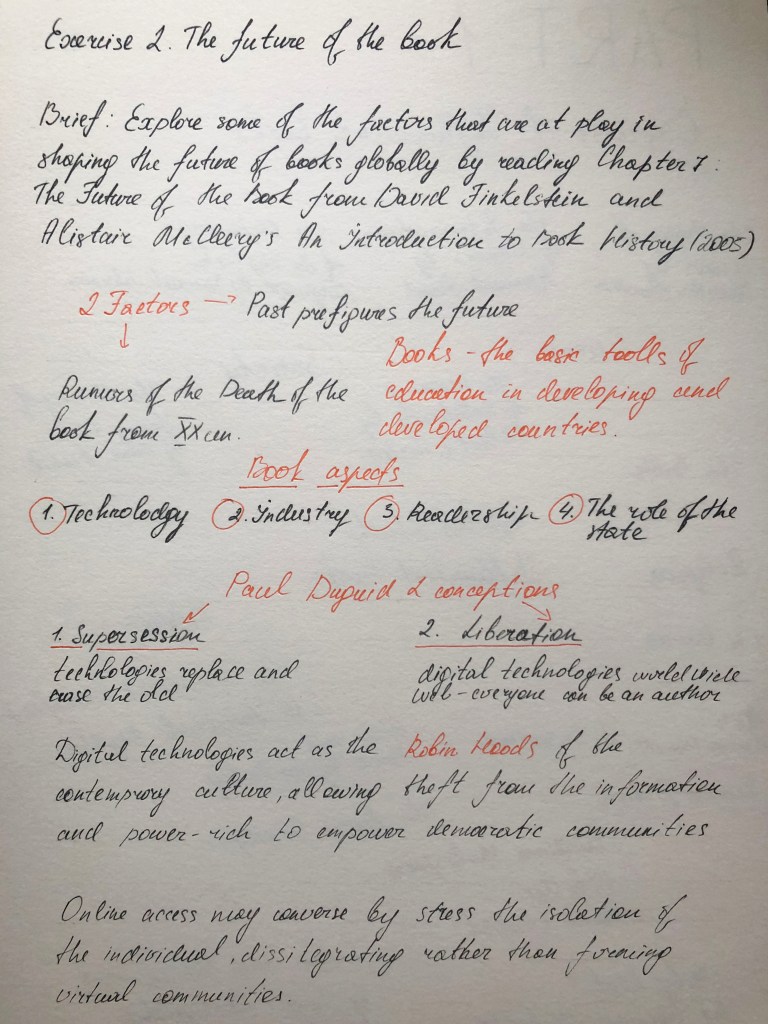 Exercise 2. The future of the book
Brief: Explore some of the factors that are at play in
shaping the future of books globally by reading Chapter 7:
The Future of the Book from David Finkelstein and
Alistair McCleery's An Introduction to Book History (2005)
2 Factors → Past prefigures the future
↓
Books - the basic toolls of
Rumors of the Death of the
education in developing and
book from XX cen.
developed countries.
Book aspects
1. Technolodgy 2. Industry 3. Readership 4. The role of the
state
Paul Duguid 2 conceptions
1. Supersession 2. Liberation
technologies replace and
erase the old
digital technologies world wide
web - everyone can be an author
Digital technologies act as the Robin Hoods of the
contemprory culture, allowing theft from the information
and power-rich to empower democratic communities
Online access may converse by stress the isolation of
the individual, rather than forming
virtual communities.